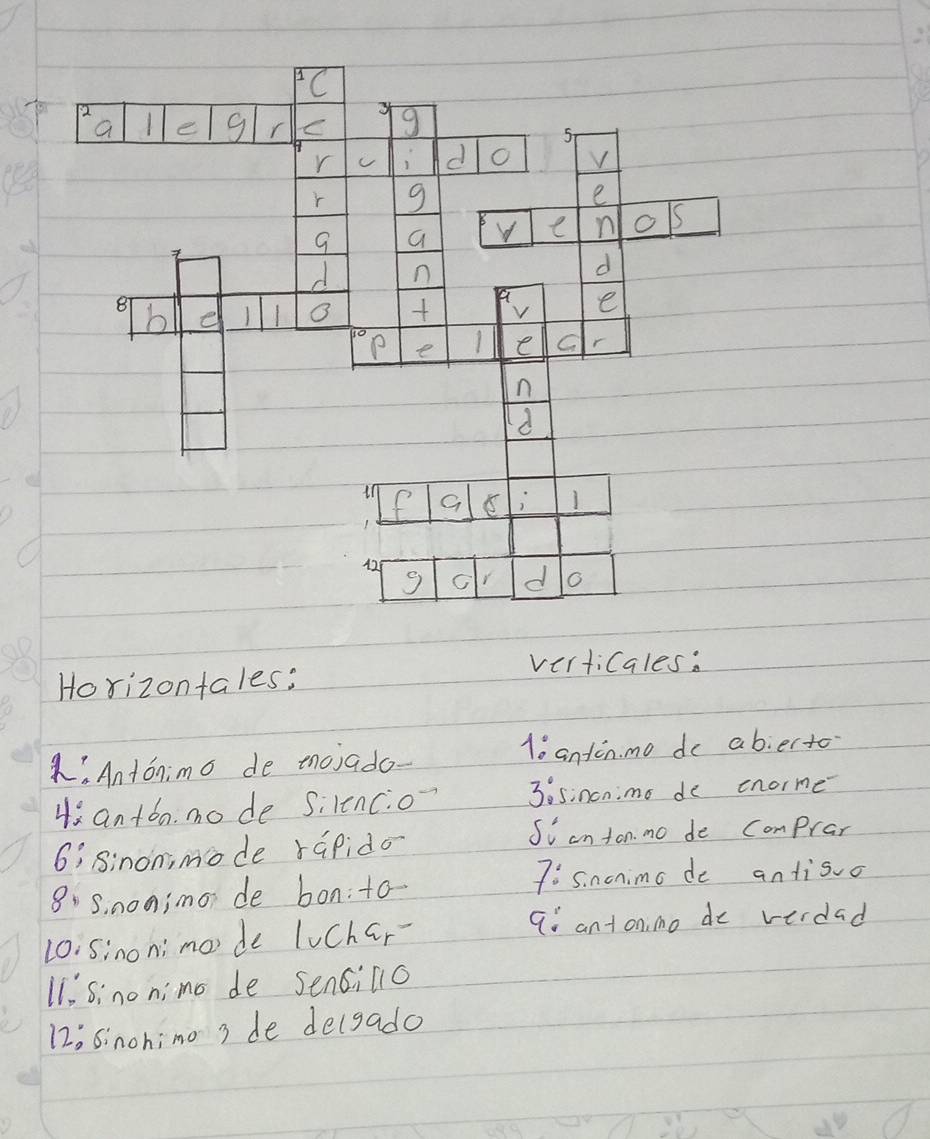 1 C
2 a l e g r e
3 g
4 r u i d o
5 v
r g e
6 v e n o s
a a
7
d n d
8 b e l l o
t
9 v
e
10 P e l e a r
n
d
11 f a s i l
12 g a r d o
Horizontales:
verticales:
2: Antónimo de mojado
4: antónimo de Silencio
6: sinonimo de rápido
8: sinonimo de bonito
10: sinonimo de luchar
11: sinonimo de sensillo
12: sinonimo 3 de delgado
1: antónimo de abierto
3: sinonimo de enorme
5: antonimo de ComPrar
7: sinonimo de antiguo
9: antonimo de verdad